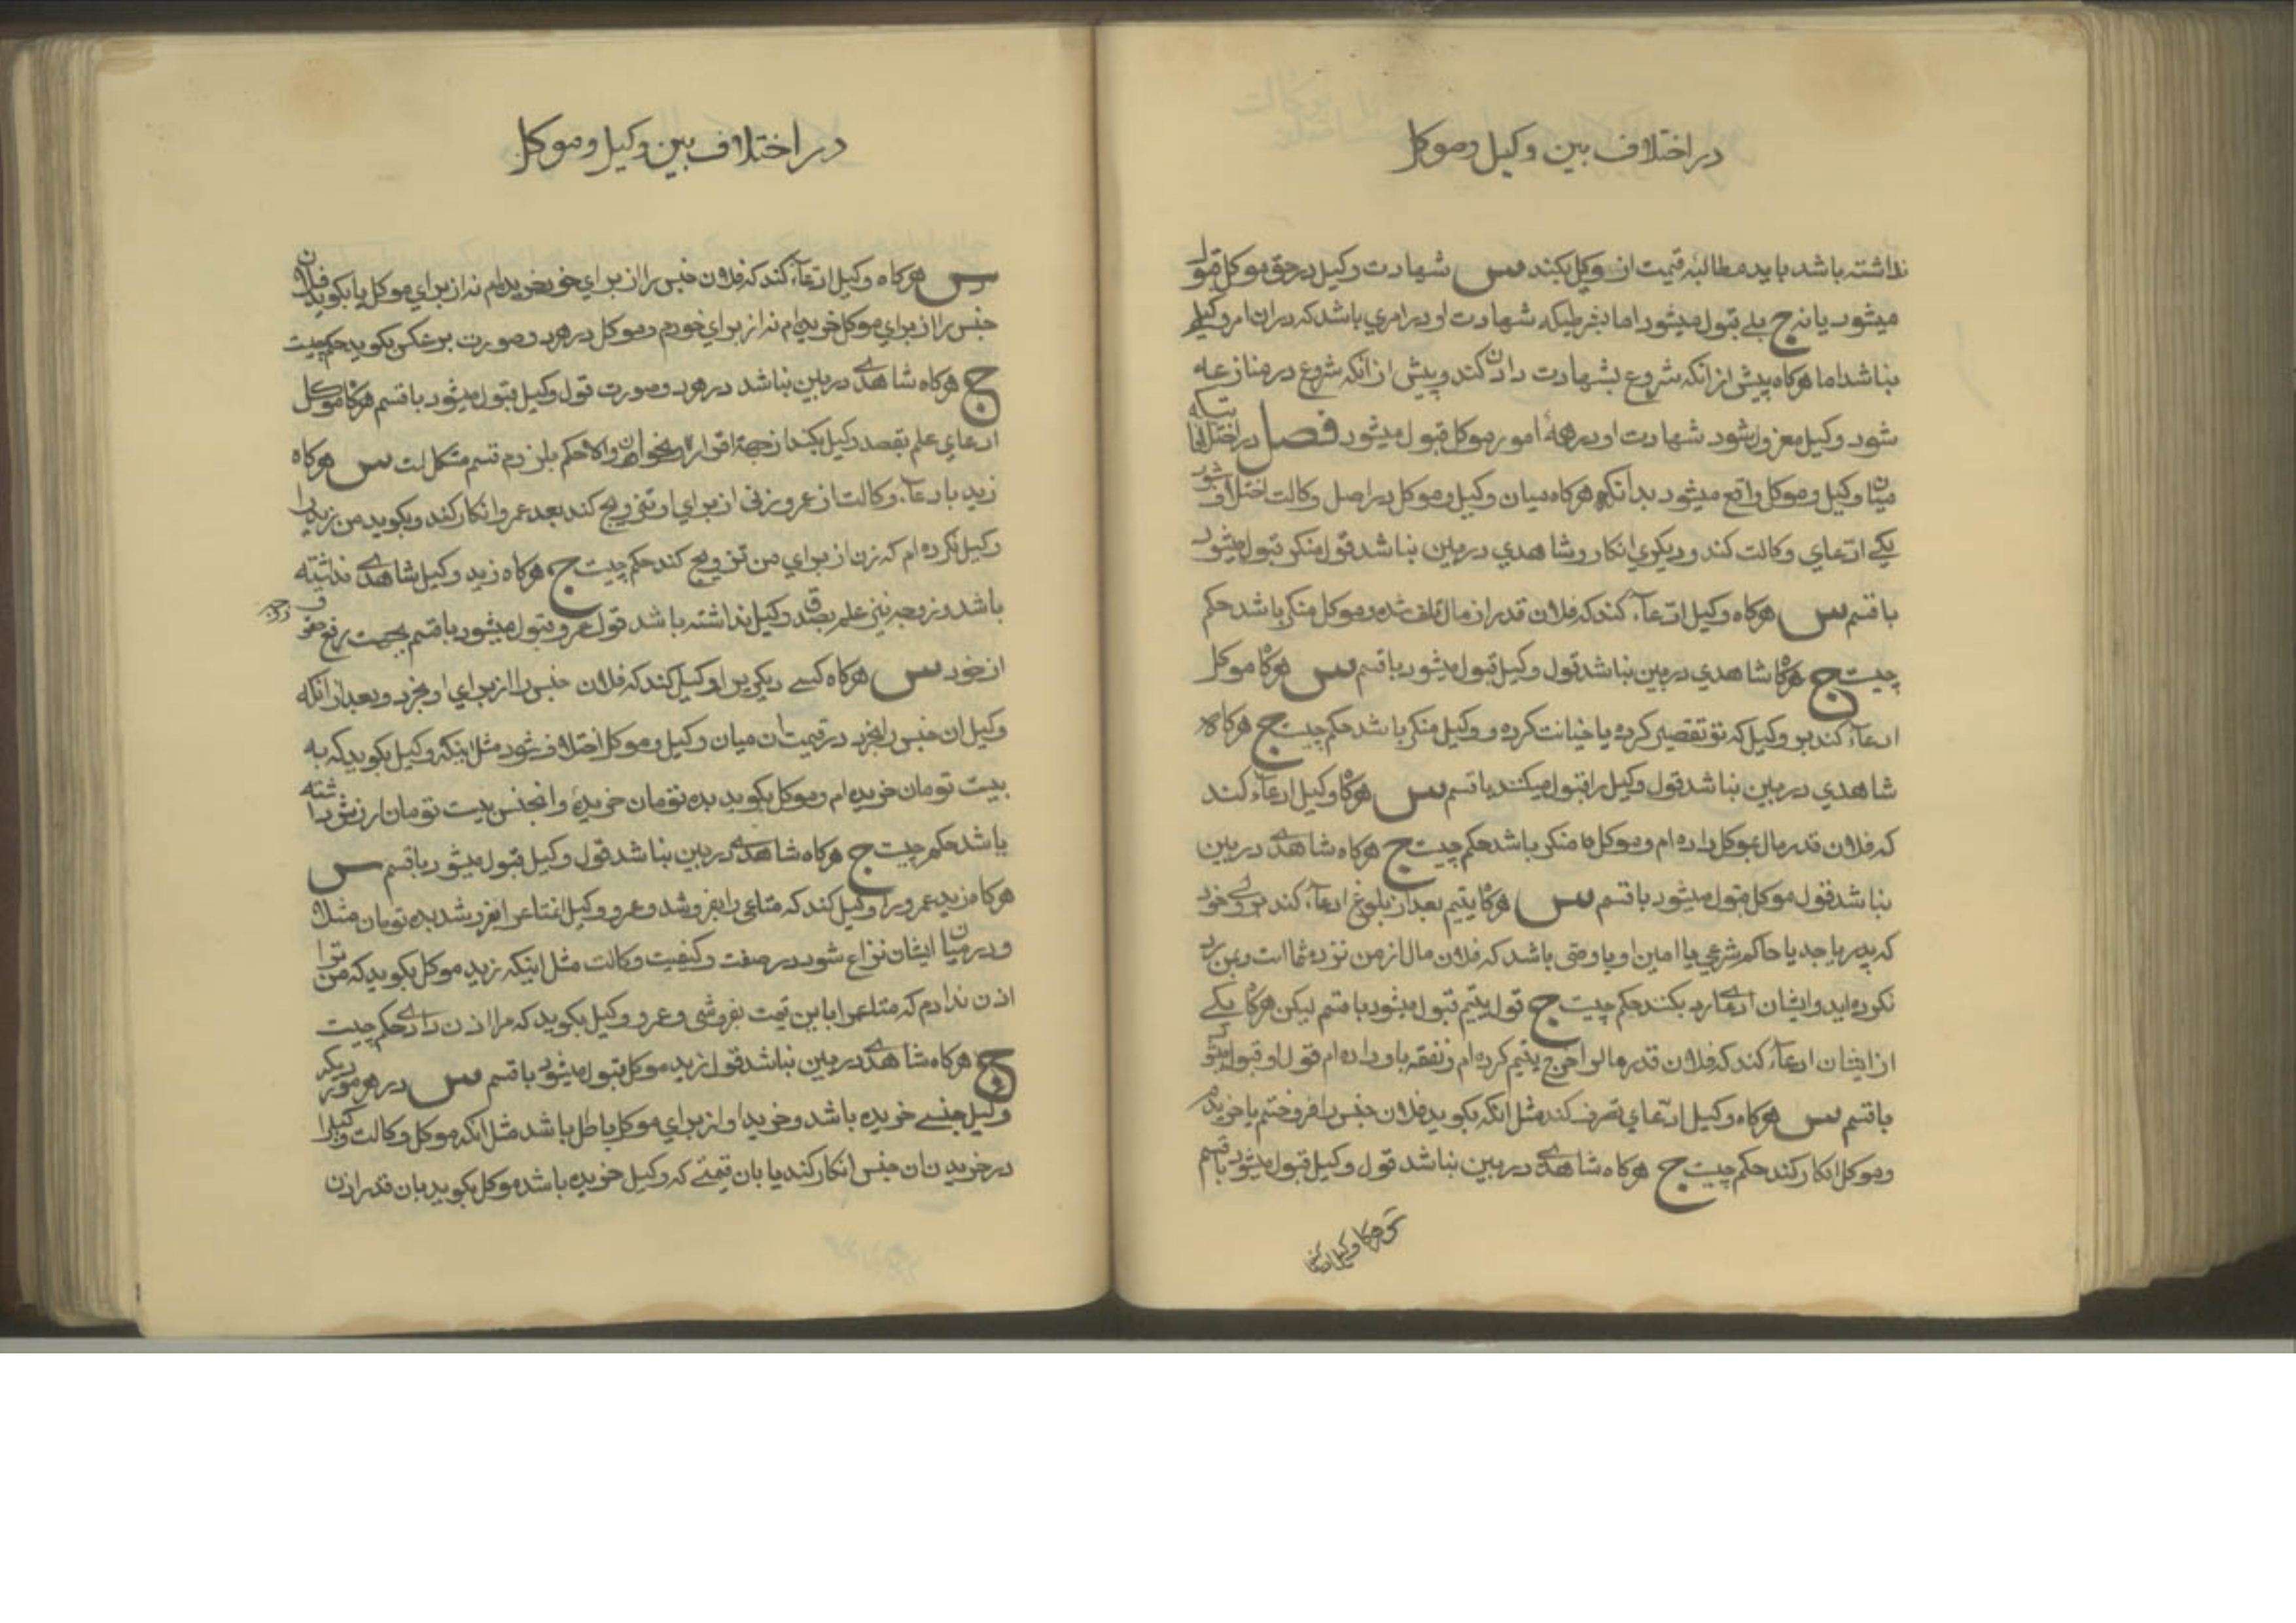 در اختلاف بین وکیل و موکل
نداشته باشد باید مطالبه قیمت از وکیل بکند س شهادت وکیل در حق موکل قبول
میشود یا نه ج بلی قبول میشود اما بشرطیکه شهادت او در امری باشد که در ان امر وکیل
نباشد اما هرکاه پیش از انکه شروع بشهادت دادن کند و پیش از انکه شروع در منازعه
شود وکیل معزول شود شهادت او در همهٔ امور موکل قبول میشود فصل در اختلافاتیکه
میان وکیل و موکل واقع میشود بدانکه هرکاه میان وکیل و موکل در اصل وکالت اختلاف شود
یکی ادعای وکالت کند و دیکری انکار و شاهدی در بین نباشد قول منکر قبول میشود
با قسم س هرکاه وکیل ادعاء کند که فلان قدر از مال تلف شده و موکل منکر باشد حکم
چیست ج هرکاه شاهدی در بین نباشد قول وکیل قبول میشود با قسم س هرکاه موکل
ادعاء کند بر وکیل که تو تقصیر کرده یا خیانت کرده و وکیل منکر باشد حکم چیست ج هرکاه
شاهدی در بین نباشد قول وکیل را قبول میکنند با قسم س هرکاه وکیل ادعاء کند
که فلان قدر مال بموکل داده ام و موکل منکر باشد حکم چیست ج هرکاه شاهدی در بین
نباشد قول موکل قبول میشود با قسم س هرکاه یتیم بعد از بلوغ ادعاء کند بر ولی خود
که پدر یا جد یا حاکم شرعی یا امین او یا وصی باشد که فلان مال از من نزد شما است و بمن رد
نکرده اید و ایشان ادعای رد بکنند حکم چیست ج قول یتیم قبول میشود با قسم لیکن هرکاه یکی
از ایشان ادعاء کند که فلان قدر مال را خرج یتیم کرده ام و نفقه باو داده ام قول او قبول میشود
با قسم س هرکاه وکیل ادعای تصرف کند مثل انکه بکوید فلان جنس را فروختم یا خریدم
و موکل انکار کند حکم چیست ج هرکاه شاهدی در بین نباشد قول وکیل قبول میشود با قسم
س هرکاه وکیل ادعا کند
در اختلاف بین وکیل و موکل
س هرکاه وکیل ادعاء کند که فلان جنس را از برای خود خریده ام نه از برای موکل یا بکوید فلان
جنس را از برای موکل خریده ام نه از برای خودم و موکل در هر دو صورت بر عکس بکوید حکم چیست
ج هرکاه شاهدی در بین نباشد در هر دو صورت قول وکیل قبول میشود با قسم هرکاه موکل
ادعای علم بقصد وکیل بکند از جهة اقرار والا حکم بلزوم قسم مشکل است س هرکاه
زید بادعاء وکالت از عمرو زنی از برای او تزویج کند بعد عمرو انکار کند و بکوید من زید را
وکیل نکرده ام که زن از برای من تزویج کند حکم چیست ج هرکاه زید وکیل شاهدی نداشته
باشد و زوجه نیز علم بصدق وکیل نداشته باشد قول عمرو قبول میشود با قسم بجهت رفع حقوق
از خود س هرکاه کسی دیکری را وکیل کند که فلان جنس را از برای او بخرد و بعد از انکه
وکیل ان جنس را بخرد در قیمت ان میان وکیل و موکل اختلاف شود مثل اینکه وکیل بکوید که به
بیست تومان خریده ام و موکل بکوید بده تومان خریدهٔ و انجنس بیست تومان ارزش داشته
باشد حکم چیست ج هرکاه شاهدی در بین نباشد قول وکیل قبول میشود با قسم س
هرکاه زید عمرو را وکیل کند که متاعی را بفروشد و عمرو وکیل انمتاع را بفروشد بده تومان مثلا
و در میان ایشان نزاع شود در صفت و کیفیت وکالت مثل اینکه زید موکل بکوید که من ترا
اذن ندادم که متاع را باین قیمت بفروشی و عمرو وکیل بکوید که مرا اذن دادی حکم چیست
ج هرکاه شاهدی در بین نباشد قول زید موکل قبول میشود با قسم س در هر موردیکه
وکیل جنسی خریده باشد و خرید او از برای موکل باطل باشد مثل انکه موکل وکالت وکیل را
در خریدن ان جنس انکار کند یا بان قیمتی که وکیل خریده باشد موکل بکوید بان قدر اذن